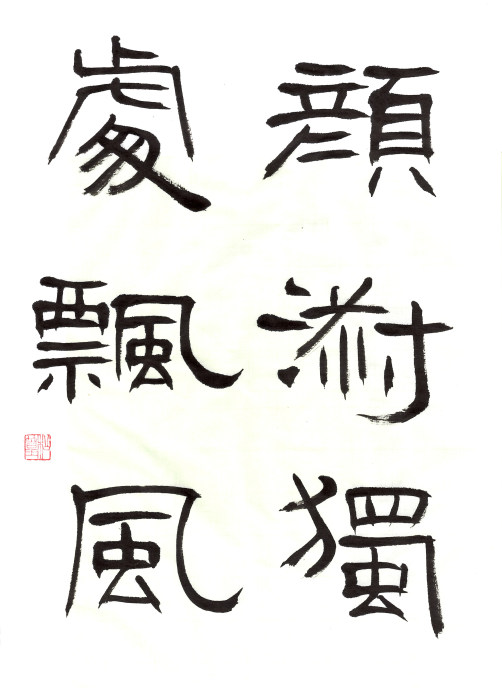 顔淑獨
處飄風